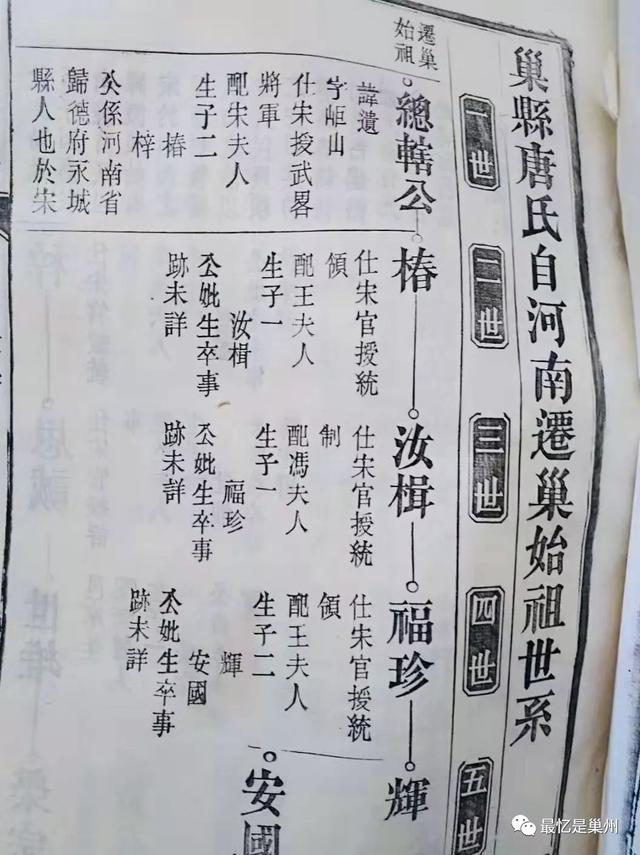 巢縣唐氏自河南遷巢始祖世系
一世
二世
三世
四世
五世
遷巢
始祖
總轄公
諱遺
字岠山
仕宋授武畧
將軍
配朱夫人
生子二
椿
梓
公係河南省
歸德府永城
縣人也於宋
椿
仕宋官授統
領
配王夫人
生子一
汝楫
公妣生卒事
跡未詳
汝楫
仕宋官授統
制
配馮夫人
生子一
福珍
公妣生卒事
跡未詳
福珍
仕宋官授統
領
配王夫人
生子二
輝
安國
公妣生卒事
跡未詳
輝
安國
最忆是巢州